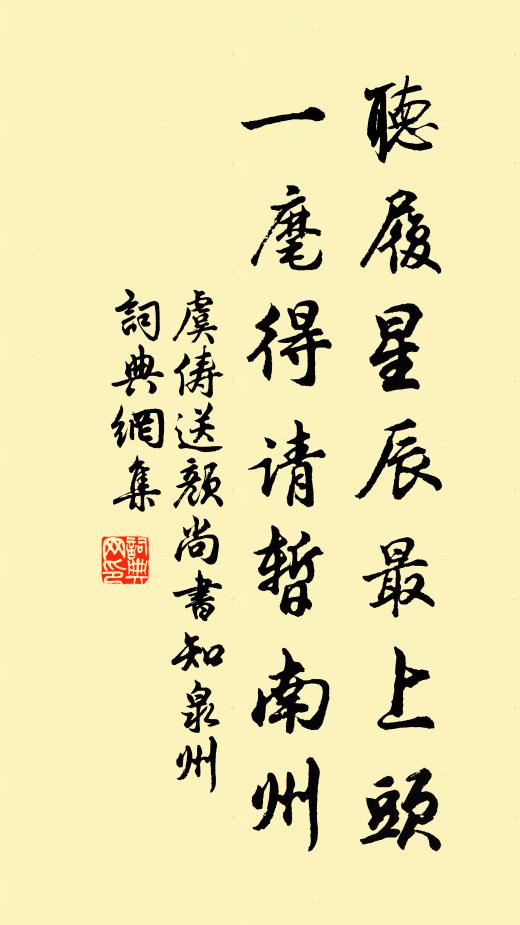 聽履星辰最上頭
一麾得请暫南州
虞儔送顏尚書知泉州
詞典網集
詞典網印